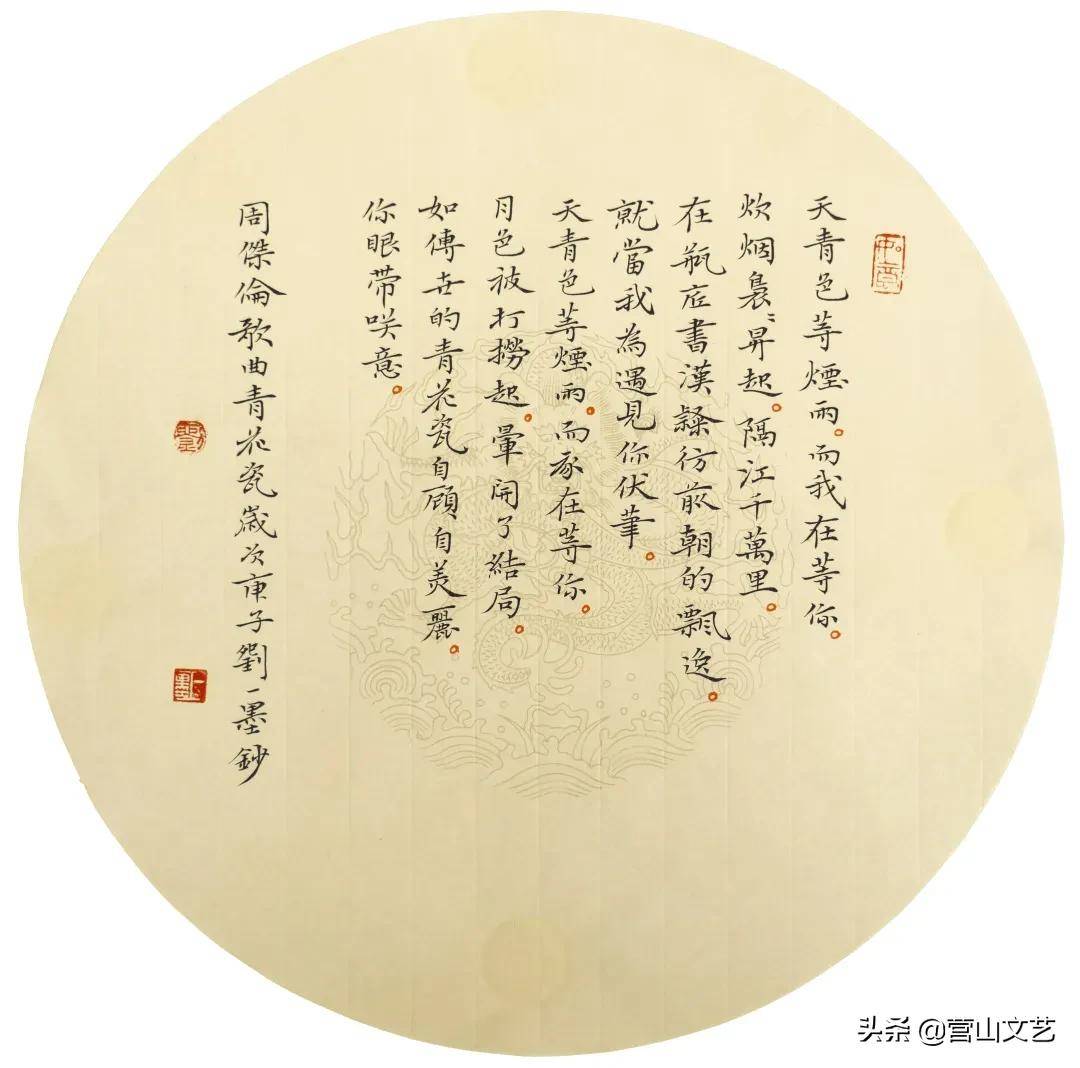 天青色等煙雨。而我在等你。
炊烟裊〻昇起。隔江千萬里。
在瓶底書漢隸彷前朝的飄逸。
就當我為遇見你伏筆。
天青色等煙雨。而我在等你。
月色被打撈起。暈開了結局。
如傳世的青花瓷自顧自美麗。
你眼帶咲意。
周傑倫歌曲青花瓷歲次庚子劉一墨鈔
一墨
头条 @营山文艺